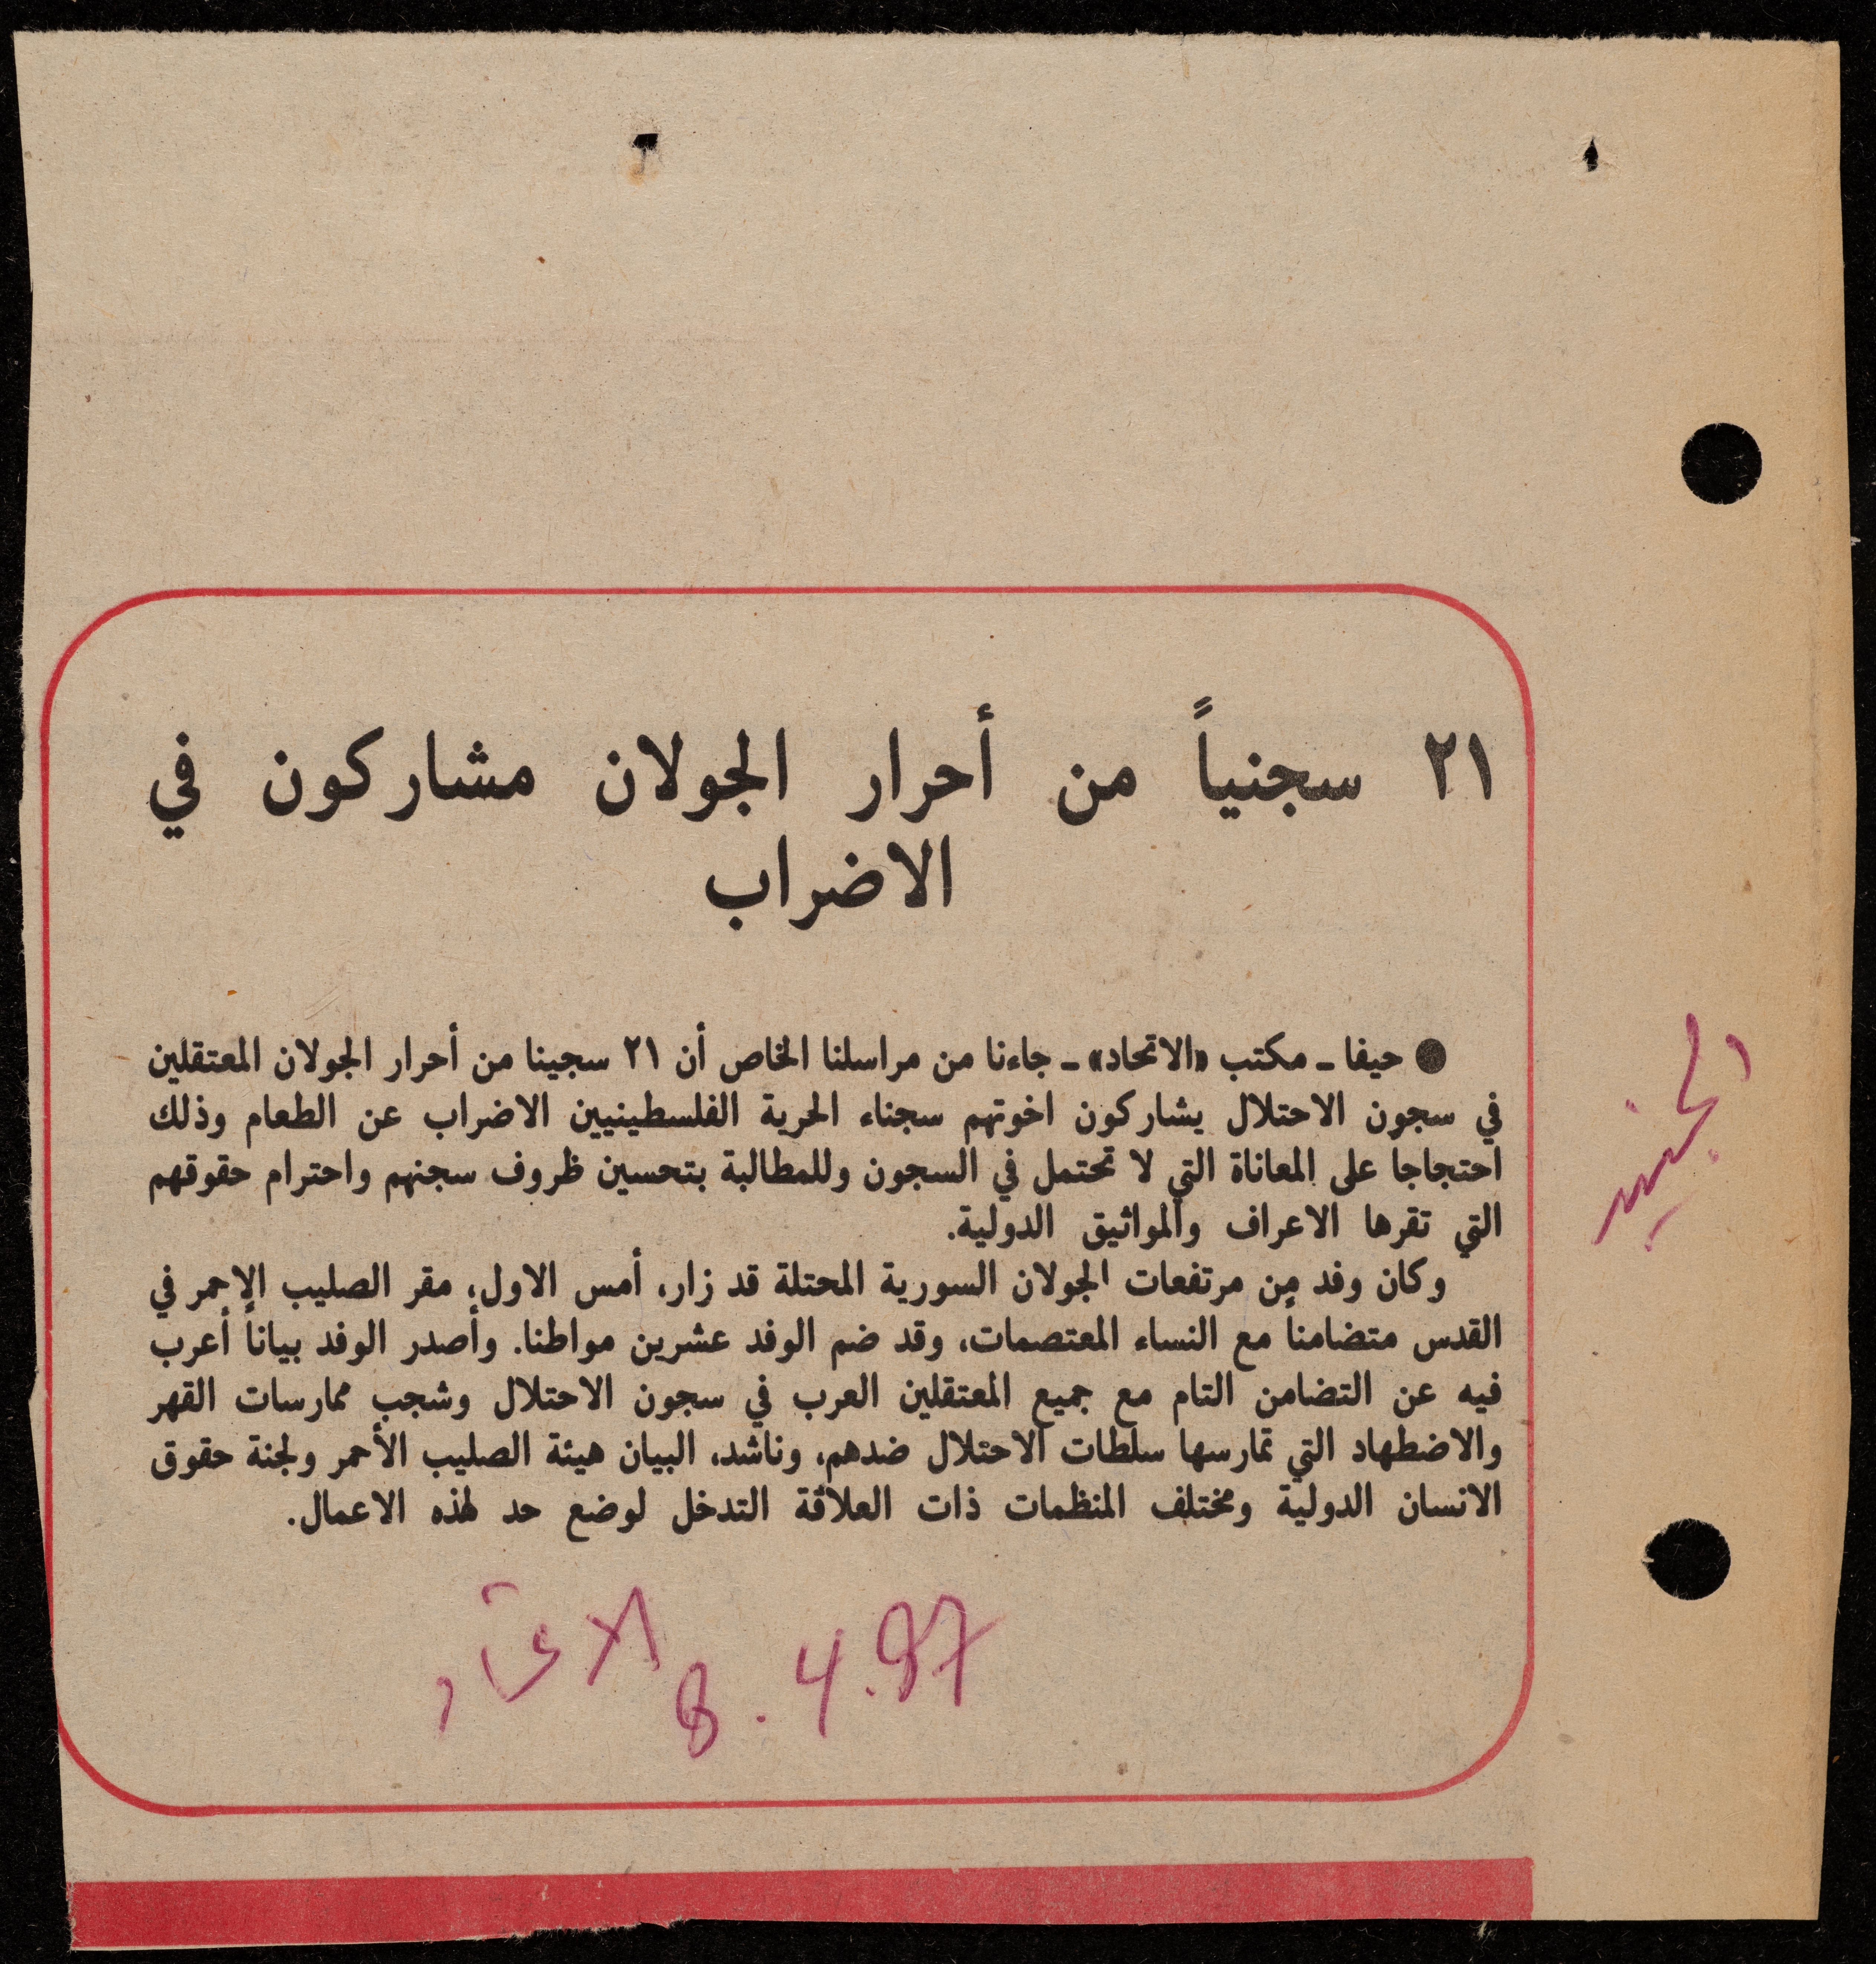 ٢١ سجنياً من أحرار الجولان مشاركون في
الاضراب
● حيفا ـ مكتب «الاتحاد» ـ جاءنا من مراسلنا الخاص أن ٢١ سجينا من أحرار الجولان المعتقلين
في سجون الاحتلال يشاركون اخوتهم سجناء الحرية الفلسطينيين الاضراب عن الطعام وذلك
احتجاجا على المعاناة التي لا تحتمل في السجون وللمطالبة بتحسين ظروف سجنهم واحترام حقوقهم
التي تقرها الاعراف والمواثيق الدولية.
وكان وفد من مرتفعات الجولان السورية المحتلة قد زار، أمس الاول، مقر الصليب الاحمر في
القدس متضامناً مع النساء المعتصمات، وقد ضم الوفد عشرين مواطنا. وأصدر الوفد بياناً أعرب
فيه عن التضامن التام مع جميع المعتقلين العرب في سجون الاحتلال وشجب ممارسات القهر
والاضطهاد التي تمارسها سلطات الاحتلال ضدهم، وناشد، البيان هيئة الصليب الأحمر ولجنة حقوق
الانسان الدولية ومختلف المنظمات ذات العلاقة التدخل لوضع حد لهذه الاعمال.
الجنيد
الاتحاد
8.4.87